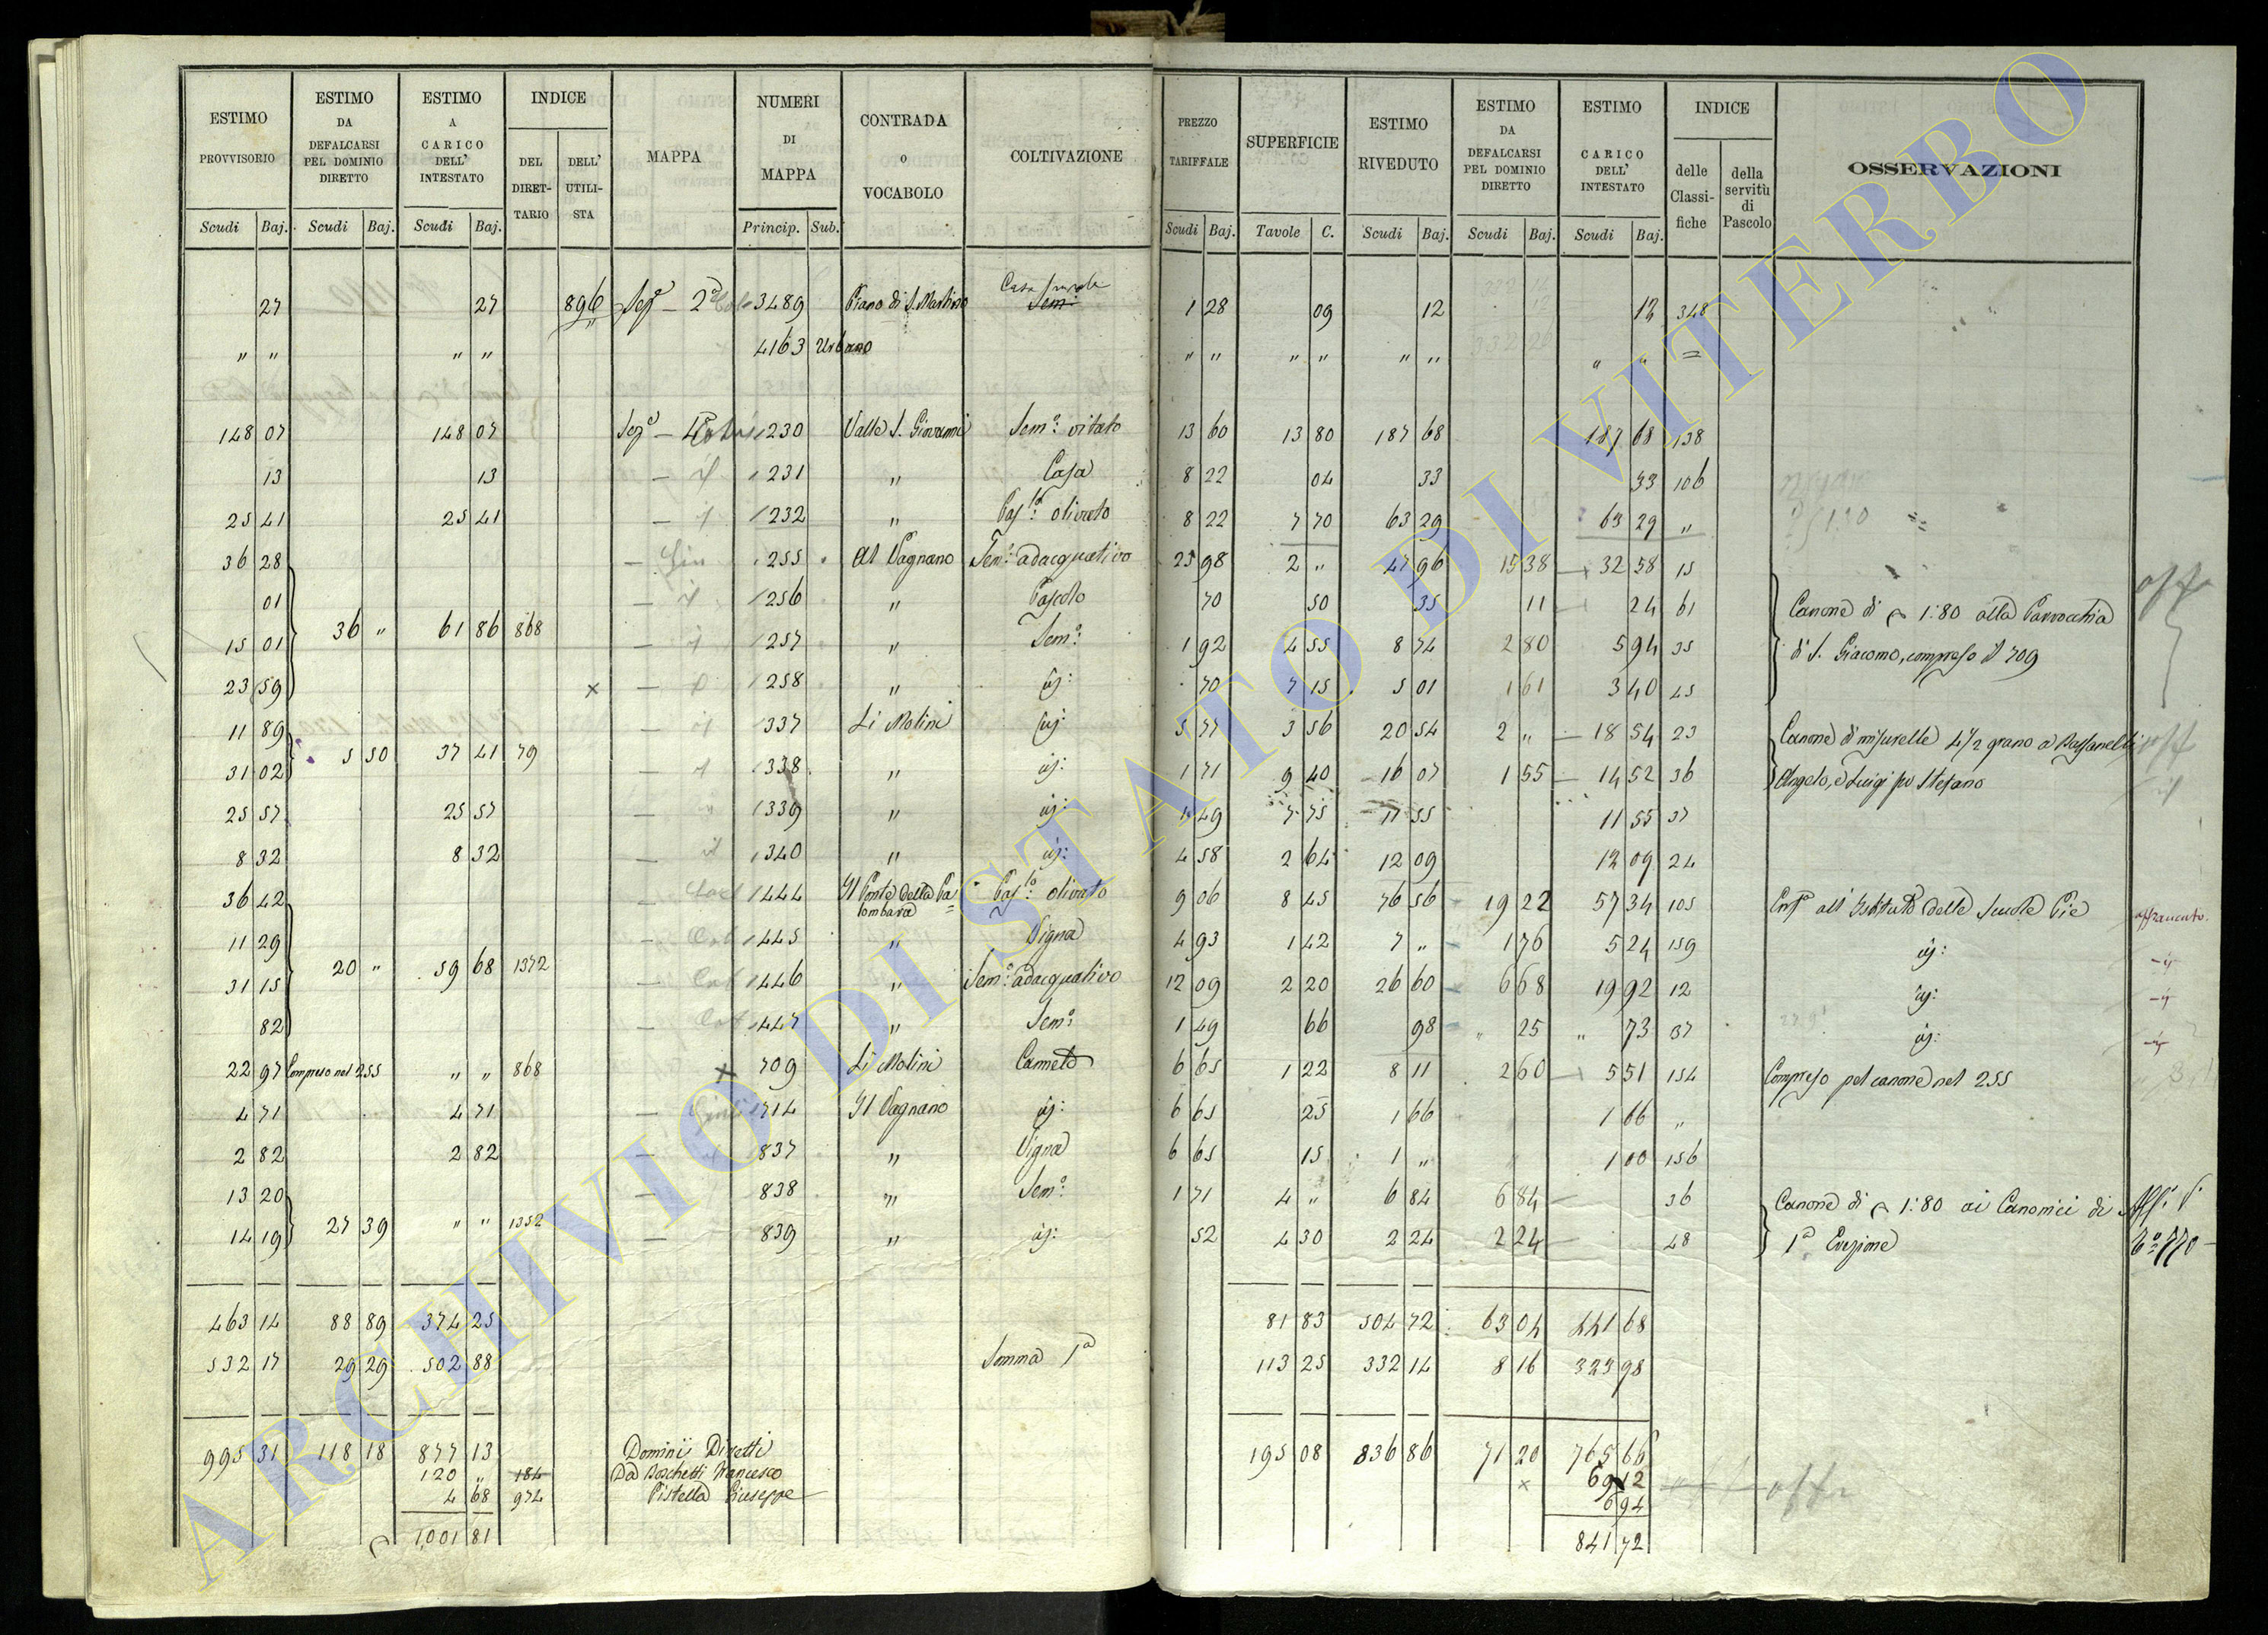 ESTIMO PROVVISORIO Scudi Baj.
ESTIMO DA DEFALCARSI PEL DOMINIO DIRETTO Scudi Baj.
ESTIMO A CARICO DELL' INTESTATO Scudi Baj.
INDICE DEL DIRETTARIO DELL' UTILISTA
MAPPA
NUMERI DI MAPPA Princip. Sub.
CONTRADA O VOCABOLO
COLTIVAZIONE
PREZZO TARIFFALE Scudi Baj.
SUPERFICIE Tavole C.
ESTIMO RIVEDUTO Scudi Baj.
ESTIMO DA DEFALCARSI PEL DOMINIO DIRETTO Scudi Baj.
ESTIMO A CARICO DELL' INTESTATO Scudi Baj.
INDICE delle Classifiche della servitù di Pascolo
OSSERVAZIONI
27 27 896 Sez.e 2a 3489 Piano di S. Martino Casa rurale Sem: 1 28 09 12 12 348
" " " " 4163 Urbano " " " " " " " " =
148 07 148 07 Sez.e 4a 230 Valle S. Giovanni Sem.o vitato 13 60 13 80 187 68 187 68 138
13 13 231 " Casa 8 22 04 33 33 106
25 41 25 41 232 " Pas.to olivato 8 22 7 70 63 29 63 29 "
36 28 255 Al Vagnano Sem.o adacquativo 23 98 2 " 47 96 15 38 32 58 15
01 256 " Pascolo 70 50 35 11 24 61 Canone di 1:80 alla Parrocchia
36 " 61 86 868
15 01 257 " Sem.o 1 92 4 55 8 74 2 80 5 94 35 di S. Giacomo, compreso il 709
23 59 x 258 " id: 70 7 15 5 01 1 61 3 40 45
11 89 337 Li Molini id: 5 77 3 56 20 54 2 " 18 54 23 Canone di misurelle 4 1/2 grano a Bassanelli
5 50 37 41 79
31 02 338 " id: 1 71 9 40 16 07 1 55 14 52 36 Angelo, e Luigi fu Stefano
25 57 25 57 339 " id: 1 49 7 75 11 55 11 55 37
8 32 8 32 340 " id: 4 58 2 64 12 09 12 09 24
36 42 444 Il Ponte della Palombara Pas.to olivato 9 06 8 45 76 56 19 22 57 34 105 all'Istituto delle Scuole Pie affrancato
11 29 445 " Vigna 4 93 1 42 7 " 1 76 5 24 159 id:
20 " 59 68 1372
31 15 446 " Sem.o adacquativo 12 09 2 20 26 60 6 68 19 92 12 id:
82 447 " Sem.o 1 49 66 98 " 25 " 73 37 id:
22 97 Compreso nel 255 " " 868 x 709 Li Molini Canneto 6 65 1 22 8 11 2 60 5 51 154 Compreso pel canone nel 255
4 71 4 71 714 Il Vagnano id: 6 65 25 1 66 1 66 "
2 82 2 82 837 " Vigna 6 65 15 1 " 1 00 156
13 20 838 " Sem.o 1 71 4 " 6 84 6 84 36 Canone di 1:80 ai Canonici di
27 39 " " 1352
14 19 839 " id: 52 4 30 2 24 2 24 48 1a Erezione
463 14 88 89 374 25 81 83 504 72 63 04 441 68
532 17 29 29 502 88 Somma 1a 113 25 332 14 8 16 323 98
995 31 118 18 877 13 Dominii Diretti 195 08 836 86 71 20 765 66
120 " 184 Da Boschetti Francesco x 69 12
4 68 974 Pistella Giuseppe 6 94
1,001 81 841 72
ARCHIVIO DI STATO DI VITERBO